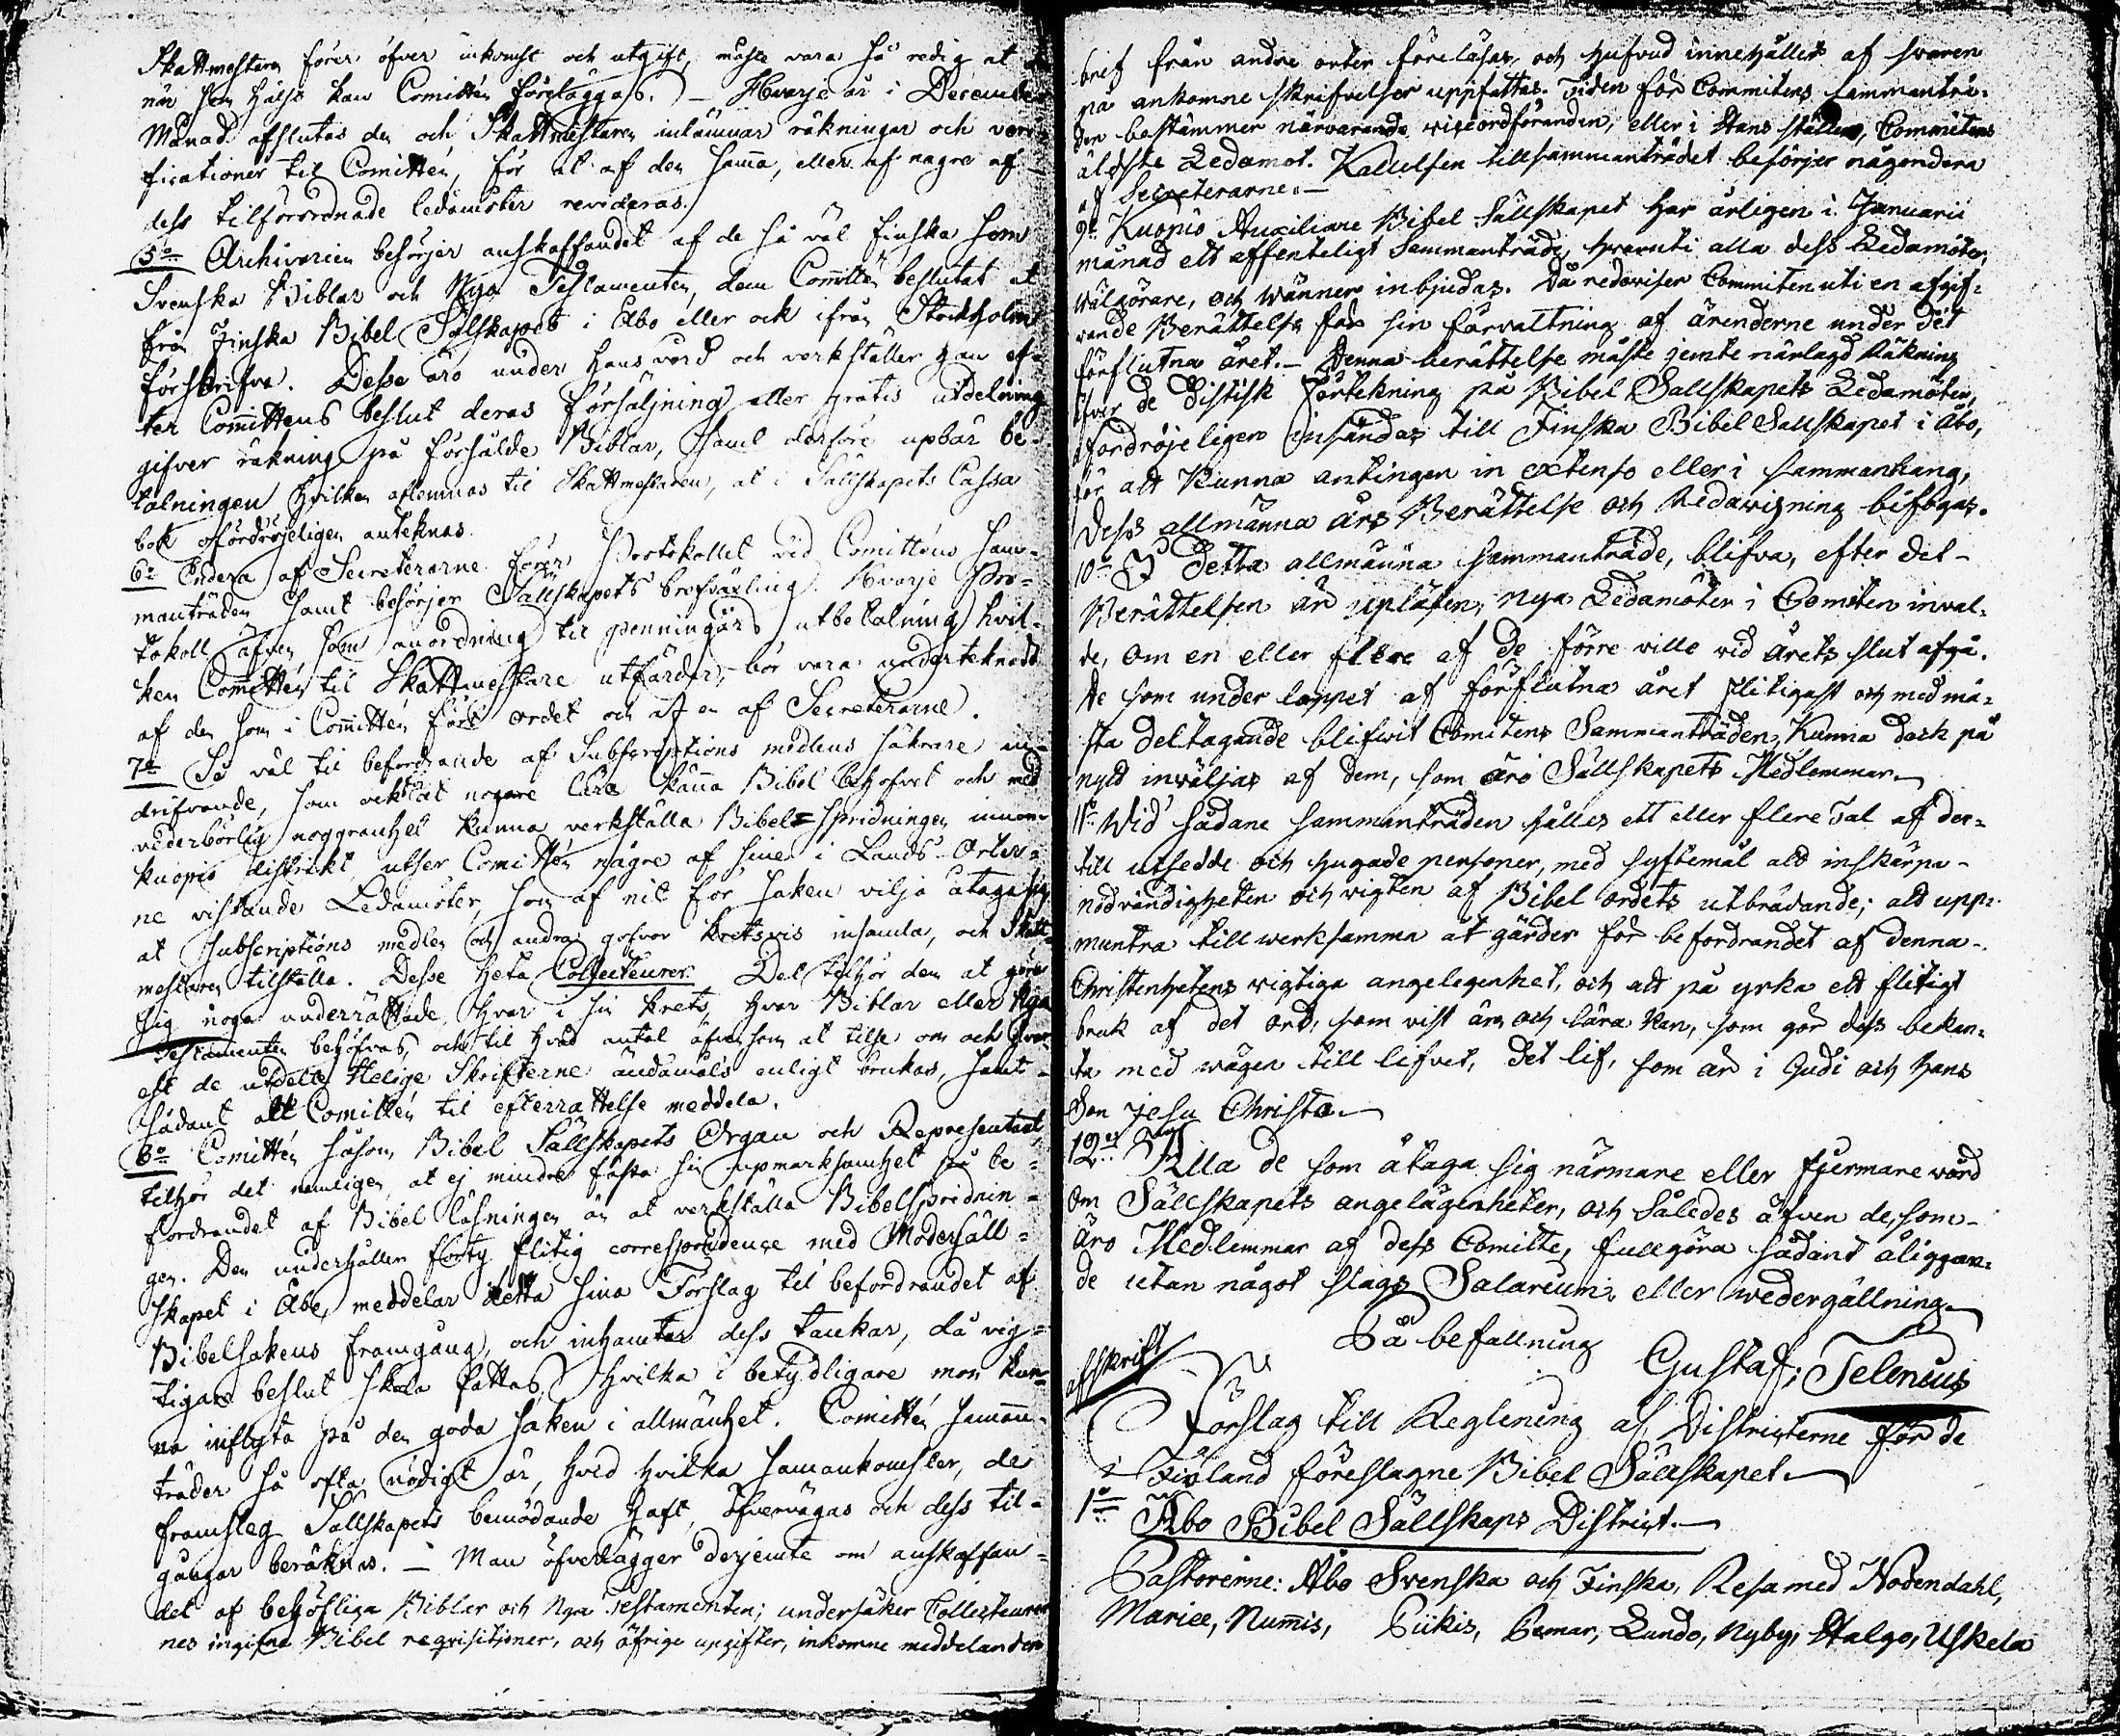 Skattmestaren förer öfver inkomst och utgift, måste vara så redig at
när som hälst kan Comittén föreläggas. – Hvarje år i December
Månad afslutas den och Skattmästaren inlämnar räkningar och veri-
ficationer til Comittén, för at af den samma, eller af nagre af
dess tilförordnade ledamöter revideras.
5o Archivarien besörjer anskaffandet af de så väl Finska som
Svenska Biblar och Nya Testamenten, dem Comittén beslutat at
från Finska Bibel Sälskapet i Åbo eller ock ifrån Stockholm
förskrifva. Desse äro under hans vård och verkställer han ef-
ter Comittens beslut deras försäljning eller gratis utdelning
gifver räkning på försålde Biblar, samt derföre upbär be-
talningen hvilken aflemnas til Skattmestaren, at i Sällskapets Cassa
bok ofördröjeligen anteknas.
6o Endera af Secreterarne förer Protokollet vid Comitténs sam-
manträden samt besörjer Sällskapets brefväxling. Hvarje Pro-
tokoll äfven som anordning til penningars utbetalning hvil-
ken Comittén til Skattmestare utfärdar, bör vara underteknadt
af den som i Comittén fört ordet och af en af Secreterarne.
7o Så väl til befordrande af Subscriptions medlens säkrare in-
drifvande, som ock at nogare lära känna Bibel behofvet och med
vederbörlig noggranhet kunna verkställa Bibel=spridningen innom
Kuopio distrikt, utser Comittén någre af sine i Lands-Orter-
ne vistande Ledamöter, som af nit för saken vilja åtaga sig
at Subscriptions medlen och andra gåfvor kretsvis insamla, och Skatt-
mestaren tilställa. Desse heta Collecteurer. Det tilhör dem at göra
sig noga underrättade, hvar i sin krets, hvar Biblar eller Nya
Testamenten behöfvas, och til hvad antal äfven som at tilse om och hvar-
est de utdelte Helige Skrifterne ändamåls enligt brukas, samt
sådant alt Comittén til efterrättelse meddela.
8o Comittén såsom Bibel Sällskapets Organ och Representant,
tilhör det nemligen at ej mindre fästa sin upmärksamhet på be-
fordrandet af Bibel läsningen än at verkställa Bibelspridnin-
gen. Den underhåller förty flitig correspondence med Modersäll-
skapet i Åbo, meddelar detta sina Förslag til befordrandet af
Bibelsakens framgång, och inhämtar dess tankar, då vig-
tigare beslut skola fattas, hvilka i betydligare mon kun-
na inflyta på den goda saken i allmänhet. Comittén samman-
träder så ofta nödigt är, hvid hvilka samankomster, de
framsteg Sällskapets bemödande haft, öfvervägas och dess til-
gångar beräknas. – Man öfverlägger derjemte om anskaffan-
det af behöfliga Biblar och Nya Testamenten; undersöker Collecteurer
nes ingifne Bibel reqvisitioner, och öfrige upgifter, inkomne meddelanden
bref från andre orter föreläsas, och hufvud innehållet af svaren
på ankomne skrifvelser uppfattas. Tiden för Commitens sammanträ-
den bestämmer närvarande viceordföranden, eller i Hans ställe, Commitens
äldste Ledamot. Kallelsen till sammanträdet besörjer någondera
af Secreterarne. –
9o Kuopio Auxiliare Bibel Sällskapet har årligen i Januarii
månad ett offenteligt Sammanträde, hvaruti alla dess Ledamöter,
wälgörare, och wänner inbjudas. Då redoviser Commiten uti en afgif-
vande Berättelse för sin förvaltning af ärenderne under det
förflutna året. – Denna berättelse måste jemte närlagd Räkning
öfver de Distisk förtekning på Bibel Sällskapets Ledamöter,
ofördröjeligen insändas till Finska Bibel Sällskapet i Åbo,
för att kunna antingen in extenso eller i sammanhang,
Dess allmänna års Berättelse och Redovisning bifogas.
10o I detta allmänna sammanträde, blifva, efter det
Berättelsen är upläsen, nya Ledamöter i Comiten inval-
de, om en eller flere af de förre ville vid årets slut afgå.
De som under loppet af förflutna året flitigast och med mä-
sta deltagande blifwit Comitens Sammanträden, kunna dock på
nytt inväljas af dem, som äro Sällskapets Medlemmar. –
11o Wid sådane sammanträden hålles ett eller flere Tal af der-
till utsedde och hugade personer, med syftemål att inskärpa
nödvändigheten och vigten af Bibel ordets utbredande; att upp-
muntra till werksamma åtgärder för befordrandet af denna
Christenhetens vigtiga angelegenhet, och att på yrka ett flitigt
bruk af det ord, som vist är, och lära kan, som gör dess bekan-
ta med wägen till lifvet, det lif, som är i Gudi och Hans
Son Jesu Christo. –
12o Alla de som åtaga sig närmare eller fjermare vård
om Sällskapets angelägenheter, och Således äfven de, som
äro Medlemmar af dess Comitte, fullgöra sådant åliggan-
de utan något slags Salarium eller wedergällning. –
På befallning
Gustaf Telenius
Afskrift
Förslag till Reglening af Districterne för de
i Finland föreslagne Bibel Sällskapet. –
1o Åbo Bibel Sällskaps District. –
Pastorerne: Åbo Svenska och Finska, Reso med Nodendahl,
Mariee, Numis, Piikis, Pemar, Lundo, Nyby, Halgo, Uskela